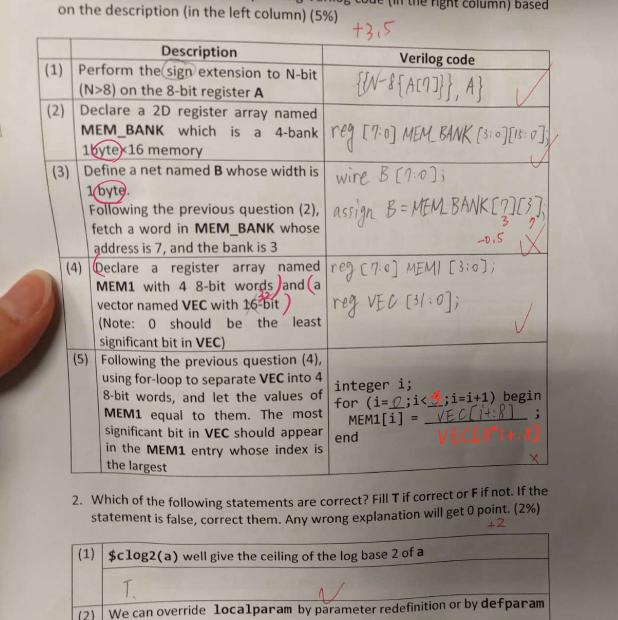 Verilog code (in the right column) based
on the description (in the left column) (5%)
+3.5
Description
Verilog code
(1) Perform the sign extension to N-bit
(N>8) on the 8-bit register A
{{N-8{A[7]}}, A}
(2) Declare a 2D register array named
MEM_BANK which is a 4-bank
1byte×16 memory
reg [7:0] MEM_BANK [3:0][15:0];
(3) Define a net named B whose width is
1 byte.
Following the previous question (2),
fetch a word in MEM_BANK whose
address is 7, and the bank is 3
wire B [7:0];
assign B = MEM_BANK[7][3];
3 7
-0.5
(4) (Declare a register array named
MEM1 with 4 8-bit words) and (a
vector named VEC with 16-bit)
32
(Note: 0 should be the least
significant bit in VEC)
reg [7:0] MEM1 [3:0];
reg VEC [31:0];
(5) Following the previous question (4),
using for-loop to separate VEC into 4
8-bit words, and let the values of
MEM1 equal to them. The most
significant bit in VEC should appear
in the MEM1 entry whose index is
the largest
integer i;
for (i=0;i<;i=i+1) begin
MEM1[i] = VEC[i+:8] ;
end
VEC[8*i+:8]
x
2. Which of the following statements are correct? Fill T if correct or F if not. If the
statement is false, correct them. Any wrong explanation will get 0 point. (2%)
+2
(1) $clog2(a) well give the ceiling of the log base 2 of a
T.
(2) We can override localparam by parameter redefinition or by defparam